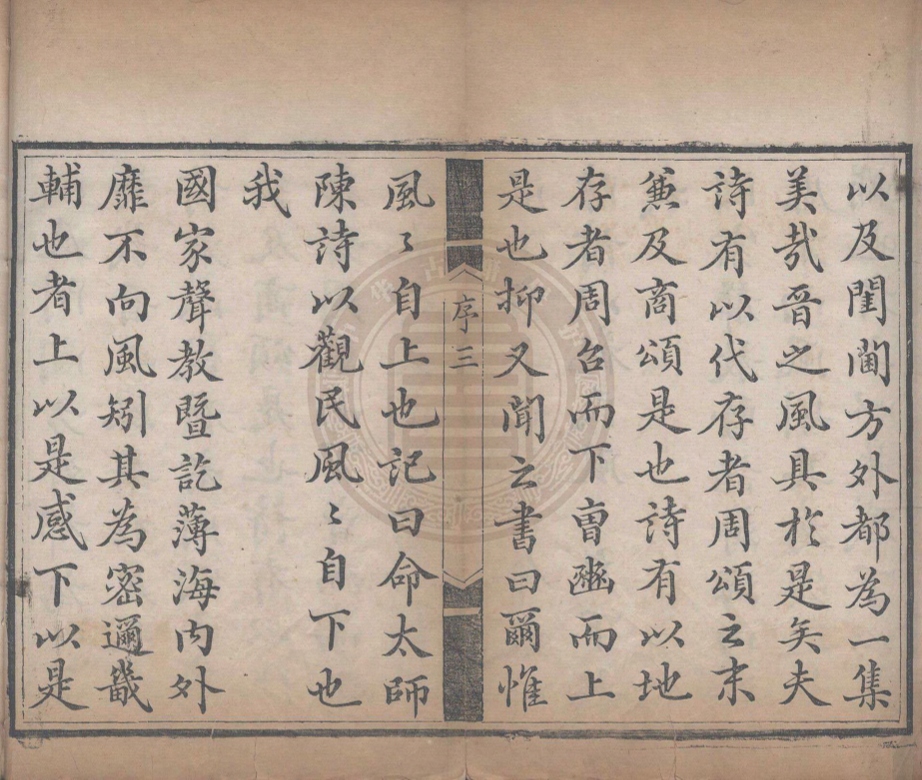 以及閨閫方外都為一集
美哉晉之風具於是矣夫
詩有以代存者周頌之末
兼及商頌是也詩有以地
存者周召而下曹豳而上
是也抑又聞之書曰爾惟
序 三
風〻自上也記曰命太師
陳詩以觀民風〻自下也
我
國家聲教暨訖薄海內外
靡不向風矧其為密邇畿
輔也者上以是感下以是